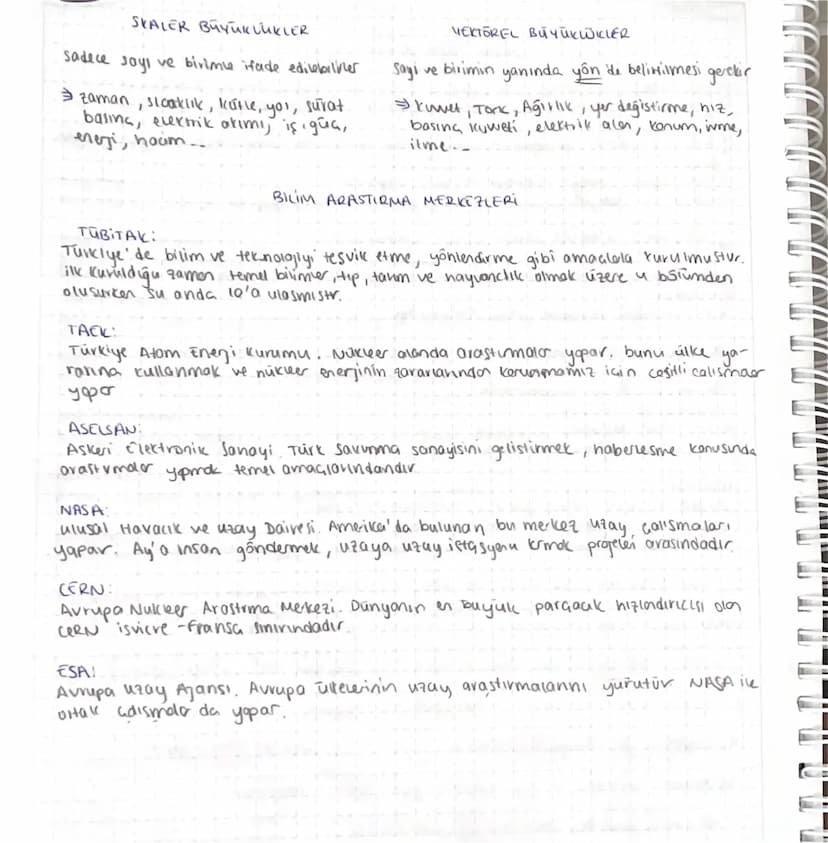 SKALER BÜYÜKLÜKLER
sadece sayı ve birimle ifade edilebilirler
⇒ zaman, sıcaklık, kütle, yol, sürat
basınç, elektrik akımı, iş, güç,
enerji, hacim...
VEKTÖREL BÜYÜKLÜKLER
sayı ve birimin yanında yön de belirtilmesi gerekir
⇒ kuvvet, Tork, Ağırlık, yer değiştirme, hız,
basınç kuvveti, elektrik alan, konum, ivme,
ilme...
BİLİM ARAŞTIRMA MERKEZLERİ
TÜBİTAK:
Türkiye'de bilim ve teknolojiyi teşvik etme, yönlendirme gibi amaçlarla kurulmuştur.
ilk kurulduğu zaman temel bilimler, tıp, tarım ve hayvancılık olmak üzere 4 bölümden
oluşurken şu anda 10'a ulaşmıştır.
TAEK:
Türkiye Atom Enerji Kurumu. Nükleer alanda araştırmalar yapar. bunu ülke ya-
rarına kullanmak ve nükleer enerjinin zararlarından korunmamız için çeşitli çalışmalar
yapar
ASELSAN:
Askeri Elektronik Sanayi. Türk savunma sanayisini geliştirmek, haberleşme konusunda
araştırmalar yapmak temel amaçlarındandır
NASA:
Ulusal Havacılık ve Uzay Dairesi. Amerika'da bulunan bu merkez uzay çalışmaları
yapar. Ay'a insan göndermek, uzaya uzay istasyonu kurmak projeleri arasındadır.
CERN:
Avrupa Nükleer Araştırma Merkezi. Dünyanın en büyük parçacık hızlandırıcısı olan
CERN isviçre-Fransa sınırındadır.
ESA:
Avrupa Uzay Ajansı. Avrupa ülkelerinin uzay araştırmalarını yürütür NASA ile
ortak çalışmalar da yapar.